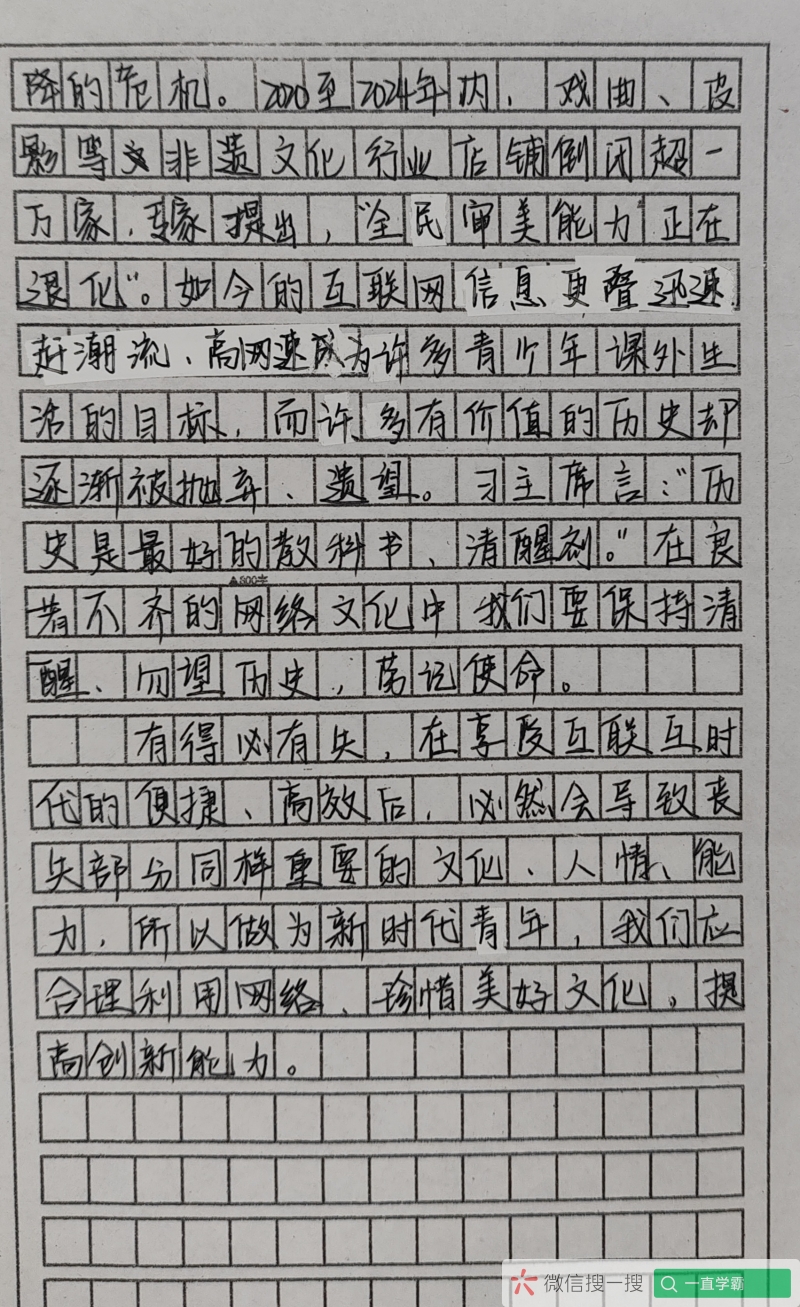 降的危机。2020至2024年内，戏曲、皮
影等非遗文化行业店铺倒闭超一
万家，专家提出，“全民审美能力正在
退化”。如今的互联网信息更叠迅速
赶潮流、高网速成为许多青少年课外生
活的目标，而许多有价值的历史却
逐渐被抛弃、遗望。习主席言：“历
史是最好的教科书、清醒剂。”在良
莠不齐的网络文化中我们要保持清
▲800字
醒、勿望历史，荡记使命。
有得必有失，在享受互联互时
代的便捷、高效后，必然会导致丧
失部分同样重要的文化、人情、能
力，所以做为新时代青年，我们应
合理利用网络、珍惜美好文化，提
高创新能力。
微信搜一搜 一直学霸